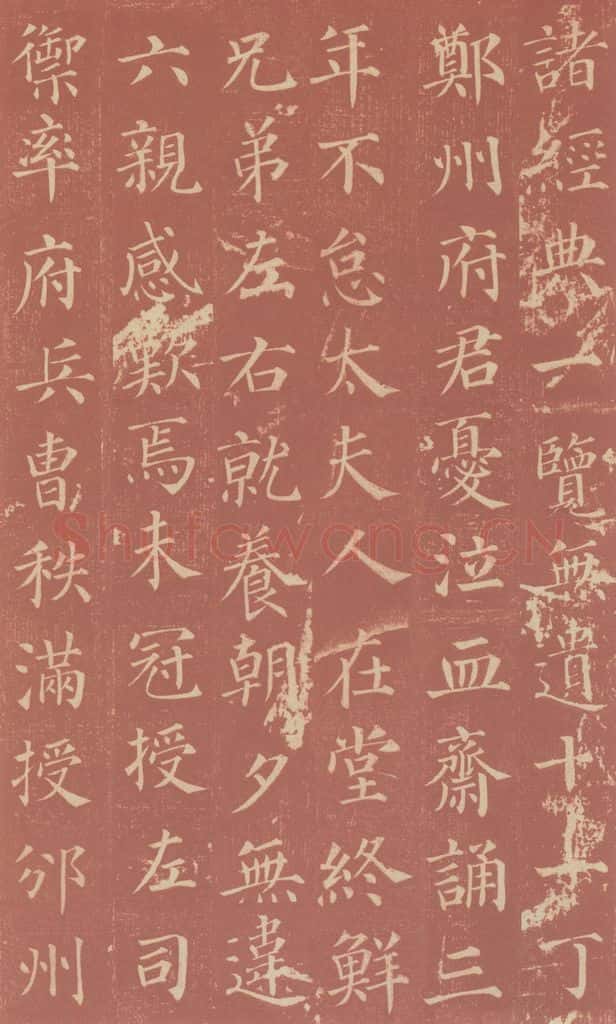 諸經典一覽無遺十一丁
鄭州府君憂泣血齋誦三
年不怠太夫人在堂終鮮
兄弟左右就養朝夕無違
六親感歎焉未冠授左司
禦率府兵曹秩滿授邠州
Shufawang.CN